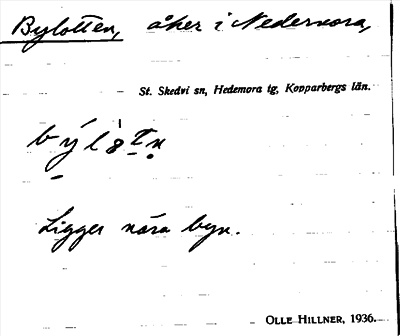 Bylotten, åker i Nedernora,
St. Skedvi sn, Hedemora tg, Kopparbergs län.
Ligger nära byn.
OLLE HILLNER, 1936.